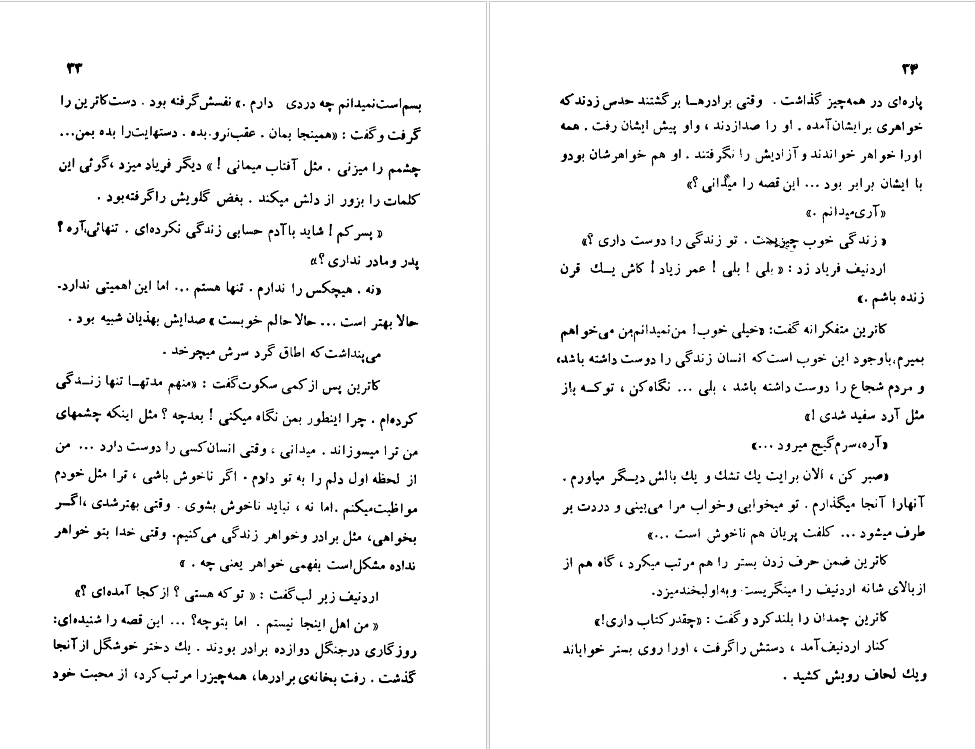 ۳۳
بسم‌است‌نمیدانم چه دردی دارم .» نفسش‌گرفته بود . دست‌کاترین را
گرفت وگفت : «همینجا بمان . عقب‌نرو.بده . دستهایت‌را بده بمن...
چشمم را میزنی . مثل آفتاب میمانی ! » دیگر فریاد میزد ،گوئی این
کلمات را بزور از دلش میکند . بغض گلویش راگرفته‌بود .
« پسرکم ! شاید باآدم حسابی زندگی نکرده‌ای . تنهائی،آره ؟
پدر ومادر نداری ؟»
«نه . هیچکس را ندارم . تنها هستم ... اما این اهمیتی ندارد.
حالا بهتر است ... حالا حالم خوبست » صدایش بهذیان شبیه بود .
می‌پنداشت‌که اطاق گرد سرش میچرخد .
کاترین پس ازکمی سکوت‌گفت : «منهم مدتهـا تنها زنـدگی
کرده‌ام . چرا اینطور بمن نگاه میکنی ! بعدچه ؟ مثل اینکه چشمهای
من ترا میسوزاند . میدانی ، وقتی انسان‌کسی را دوست دارد ... من
از لحظه اول دلم را به تو دادم . اگر ناخوش باشی ، ترا مثل خودم
مواظبت‌میکنم .اما نه ، نباید ناخوش بشوی . وقتی بهترشدی ،اگـر
بخواهی، مثل برادر وخواهر زندگی می‌کنیم. وقتی خدا بتو خواهر
نداده مشکل‌است بفهمی خواهر یعنی چه . »
اردنیف زیر لب‌گفت : « توکه هستی ؟ ازکجا آمده‌ای ؟»
« من اهل اینجا نیستم . اما بتوچه؟ ... این قصه را شنیده‌ای:
روزگاری درجنگل دوازده برادر بودند . یك دختر خوشگل ازآنجا
گذشت . رفت بخانه‌ی برادرها، همه‌چیزرا مرتب‌کرد، از محبت خود
۳۴
پاره‌ای در همه‌چیز گذاشت . وقتی برادرهـا برگشتند حدس زدندکه
خواهری برایشان‌آمده . او را صدازدند ، واو پیش ایشان رفت . همه
اورا خواهر خواندند وآزادیش را نگرفتند . او هم خواهرشان بودو
با ایشان برابر بود ... این قصه را میدانی ؟»
«آری‌میدانم .»
« زندگی خوب چیزیست . تو زندگی را دوست داری ؟»
اردنیف فریاد زد : « بلی ! بلی ! عمر زیاد ! کاش یـك قرن
زنده باشم .»
کاترین متفکرانه گفت: «خیلی خوب! من‌نمیدانم‌من می‌خواهم
بمیرم،باوجود این خوب است‌که انسان زندگی را دوست داشته باشد،
و مردم شجاع را دوست داشته باشد ، بلی ... نگاه‌کن ، توکـه باز
مثل آرد سفید شدی !»
«آره،سرم‌گیج میرود ...»
«صبر کن ، الان برایت یك تشك و یك بالش دیـگر میاورم .
آنهارا آنجا میگذارم . تو میخوابی وخواب مرا می‌بینی و دردت بر
طرف میشود ... کلفت پریان هم ناخوش است ...»
کاترین ضمن حرف زدن بستر را هم مرتب میکرد ، گاه هم از
ازبالای شانه اردنیف را مینگریست وبه‌اولبخندمیزد.
کاترین چمدان را بلندکرد وگفت : «چقدرکتاب داری!»
کنار اردنیف‌آمد ، دستش راگرفت ، اورا روی بستر خواباند
ویك لحاف رویش کشید .